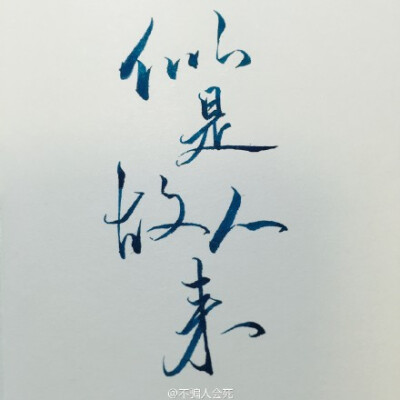 似
是
故人
来
@不惘人会死